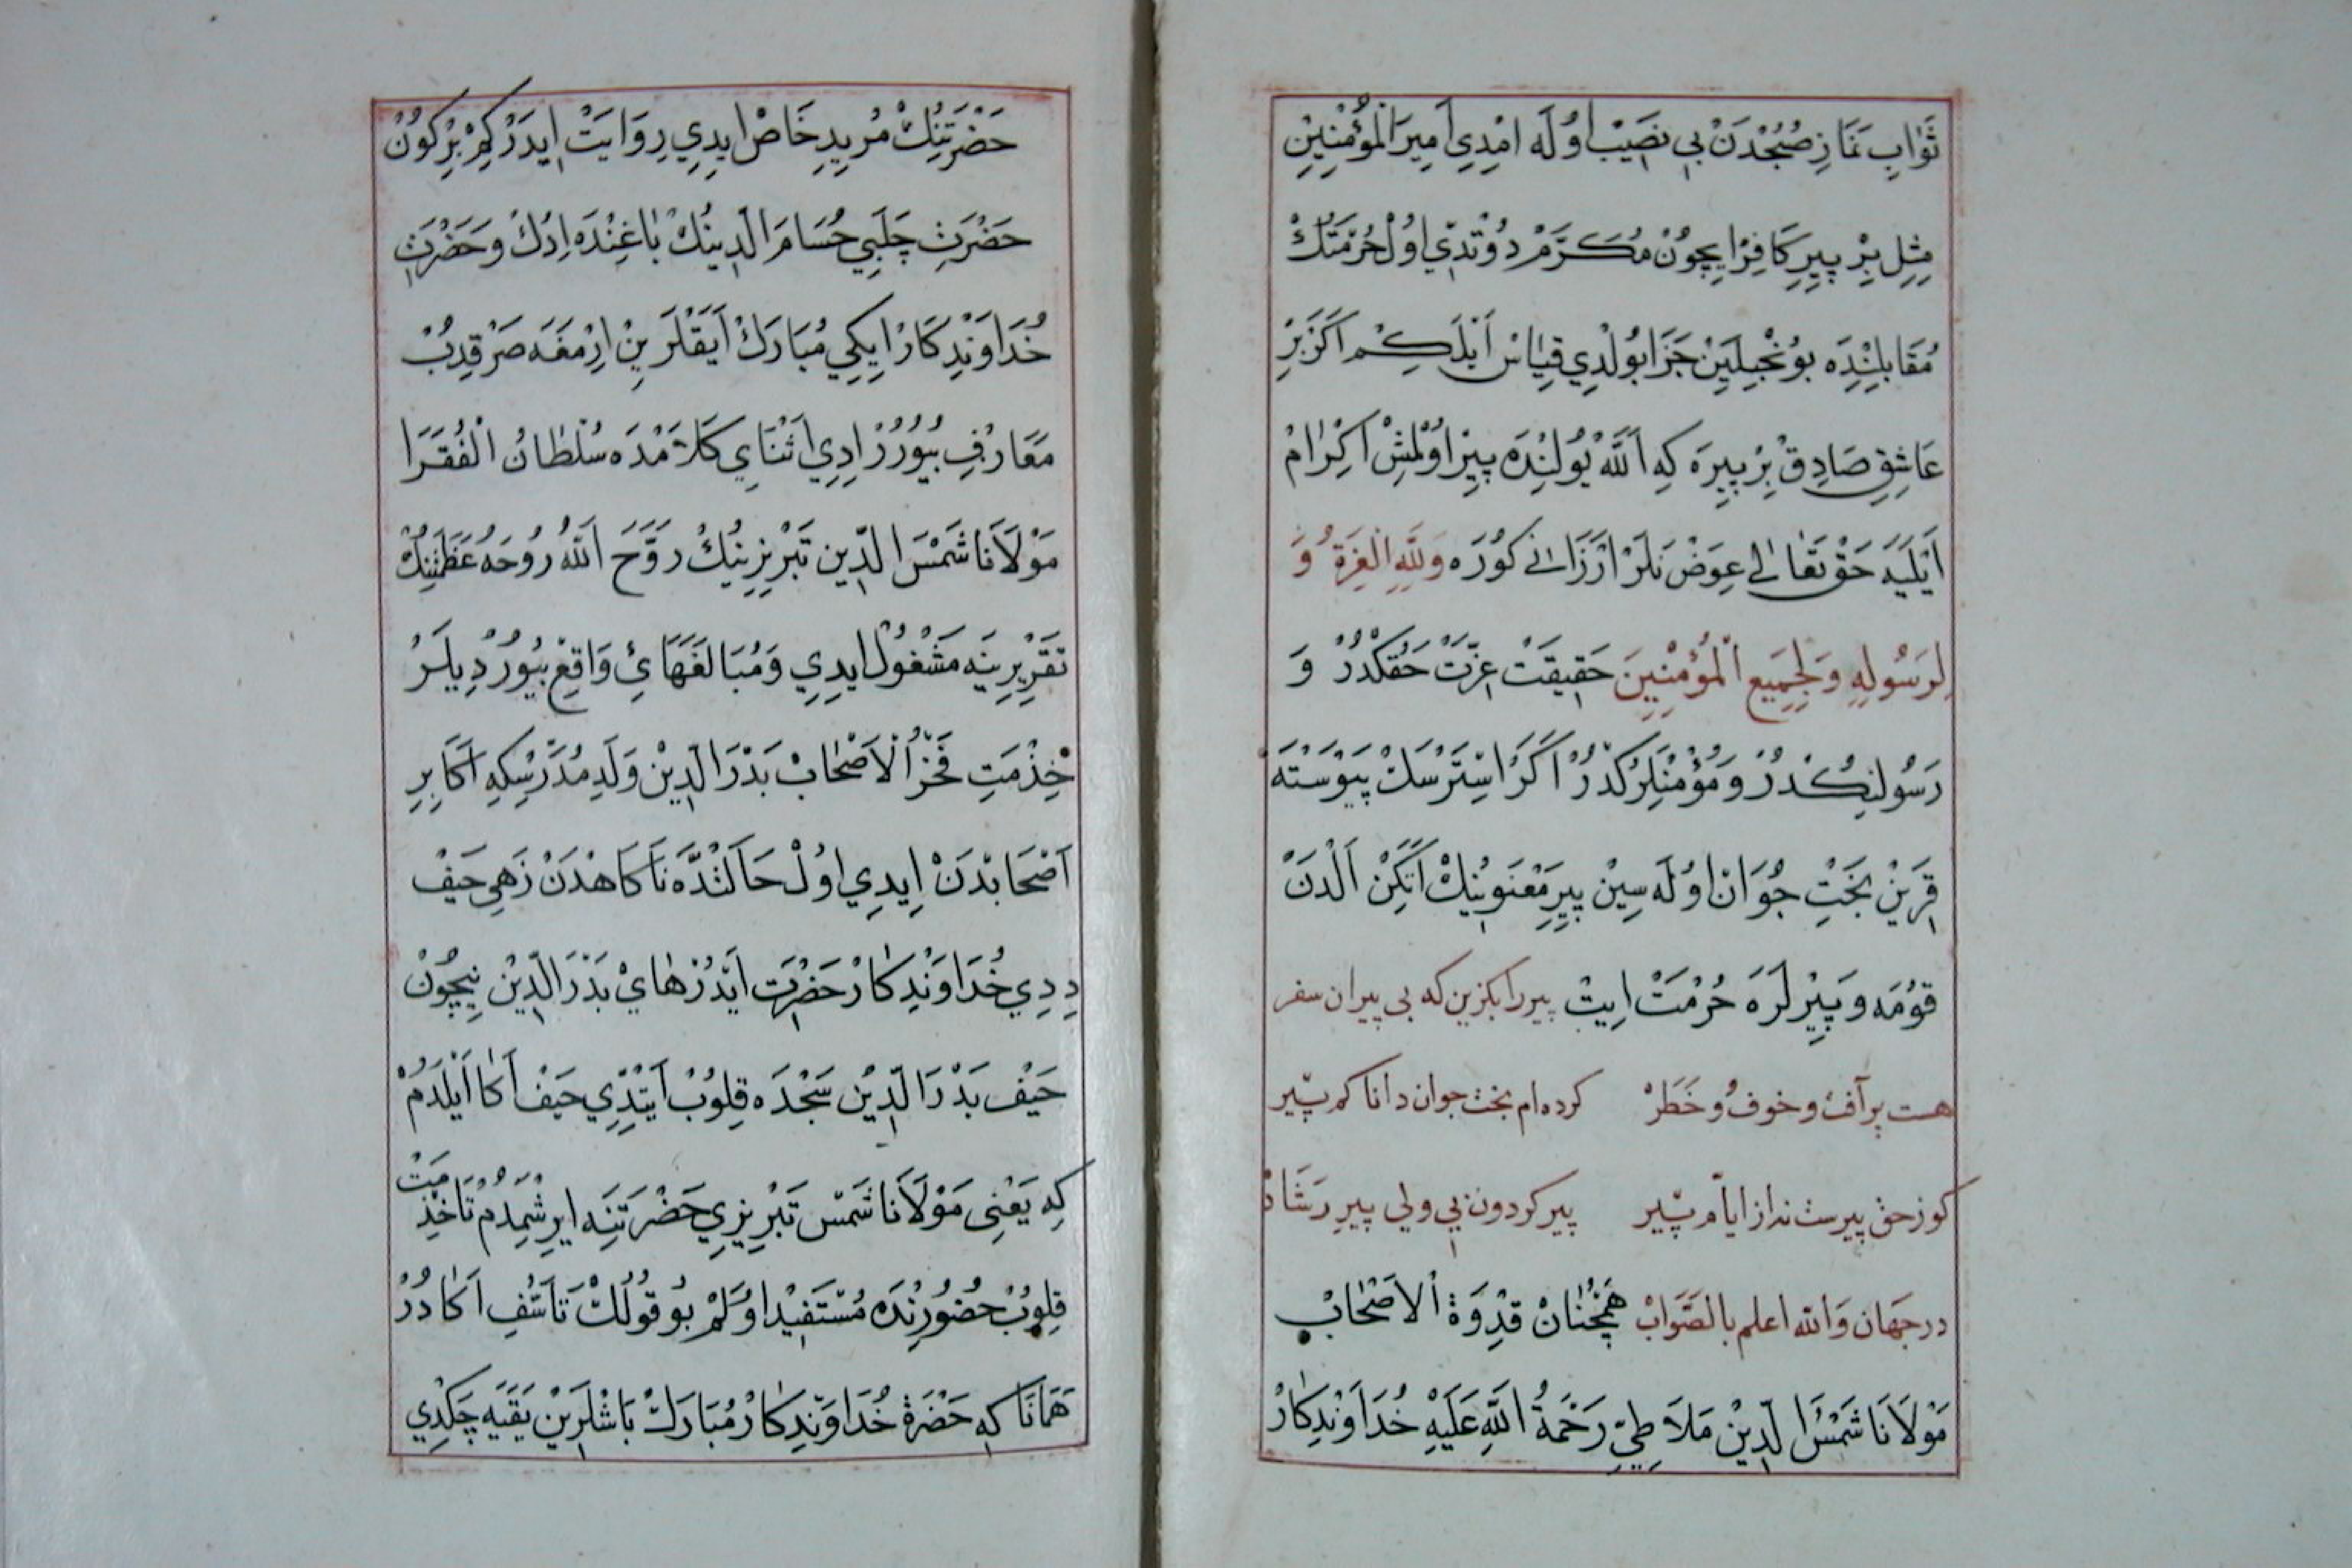 ثَوَابِ نَمَازِ صُبْحُدَنْ بِی نَصِیبْ اُولَه اِمْدِی اَمِیرَ الْمُؤْمِنِینْ
مِثِلِ بِرْ پِیرِ کَافِرْ اِیچُونْ مُکَرَّمْ دُوتْدِی اُولْ حُرْمَتُكْ
مُقَابِلِنْدَه بُونْجِیلَیِنْ جَزَا بُولْدِی قِیَاسْ اَیْلَكِمْ اَكَرْ بِرْ
عَاشِقِ صَادِقْ بِرْ پِیرَه كِه اَللّٰهْ یُولِنْدَه پِیرْ اُولْمِشْ اِكْرَامْ
اَیْلَیَه حَقْ تَعَالٰی عِوَضْ نَلَرْ اَرْزَانِی كُورَه وَلِلّٰهِ الْعِزَّةُ وَ
لِرَسُولِهِ وَلِجَمِیعِ الْمُؤْمِنِینَ حَقِیقَتْ عِزَّتْ حَقُكْدُرْ وَ
رَسُولِنِكْدُرْ وَمُؤْمِنْلَرُكْدُرْ اَكَرْ اِسْتَرْسَكْ پَیْوَسْتَه
قَرِینْ بَخْتِ جُوَانْ اُولَه سِینْ پِیرِ مَعْنَوِینِكْ اَتَكِنْ اَلْدَنْ
قُومَه وَپِیرْلَرَه حُرْمَتْ اِیتْ پیر را بکزین که بی پیر ان سفر
هست پر آفت و خوف و خَطَرْ کرده ام بخت جوان دا نام پیر
کو ز حق پیرست نه از ایام پیر پیر کردون نی ولی پیرِ رَشَادْ
در جهان وَالله اعلم بالصَّوَابْ هَمْچُنَانْ قِدْوَةُ الْاَصْحَابْ
مَوْلَانَا شَمْسُ الدِّینْ مَلَاطِیِّ رَحْمَةُ اللّٰهِ عَلَیْهِ خُدَاوَنْدِكَارْ
حَضْرَتِنُكْ مُرِیدِ خَاصْ اِیدِی رِوَایَتْ اِیدَرْ كِمْ بِرْ كُونْ
حَضْرَتِ چَلَبِی حُسَامَ الدِّینُكْ بَاغِنْدَه اِدُكْ وَحَضْرَتِ
خُدَاوَنْدِكَارْ اِیكِی مُبَارَكْ اَیَقْلَرِینْ اِرْمَغَه صَرْقِدُبْ
مَعَارِفْ بُیُورُرْ اِدِی اَثْنَایِ كَلَامْدَه سُلْطَانُ الْفُقَرَا
مَوْلَانَا شَمْسَ الدِّینِ تَبْرِیزِینُكْ رَوَّحَ اللّٰهُ رُوحَهُ عَظَمَتِنُكْ
تَقْرِیرِینَه مَشْغُولْ اِیدِی وَمُبَالَغَهَائِ وَاقِعْ بُیُورْدِیلَرْ
خِذْمَتِ فَخْرُ الْاَصْحَابْ بَدْرَ الدِّینْ وَلَدِ مُدَرِّسْكِه اَكَابِرِ
اَصْحَابْدَنْ اِیدِی اُولْ حَالَتْدَه نَاكَاهْدَنْ زَهِی حَیْفْ
دِدِی خُدَاوَنْدِكَارْ حَضْرَتْ اَیْدُرْ هَایْ بَدْرَ الدِّینْ نِیچُونْ
حَیْفْ بَدْرَ الدِّینْ سَجْدَه قِلُوبْ اَیِتْدِی حَیْفْ اَكَا اَیْلَدُمْ
كِه یَعْنِی مَوْلَانَا شَمْسِ تَبْرِیزِی حَضْرَتِنَه اِیرِشْمِدُمْ تَا خِذْمَتْ
قِلُوبْ حُضُورِنْدَه مُسْتَفِیدْ اُولَمْ بُو قُولُكْ تَاَسُّفِ اَكَادُرْ
هَمَانَا كِه حَضْرَةِ خُدَاوَنْدِكَارْ مُبَارَكْ بَاشْلَرِینْ یَقَیَه چَكْدِی